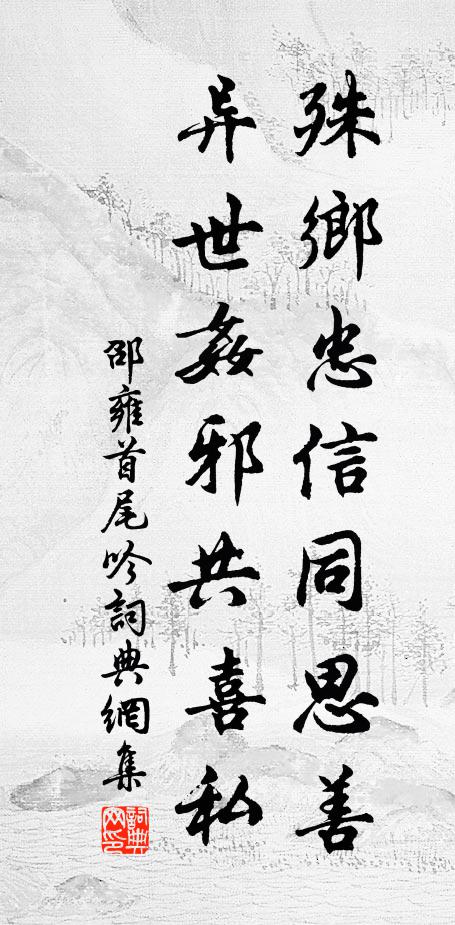 殊鄉忠信同思善
异世姦邪共喜私
邵雍首尾吟詞典網集
詞典网印